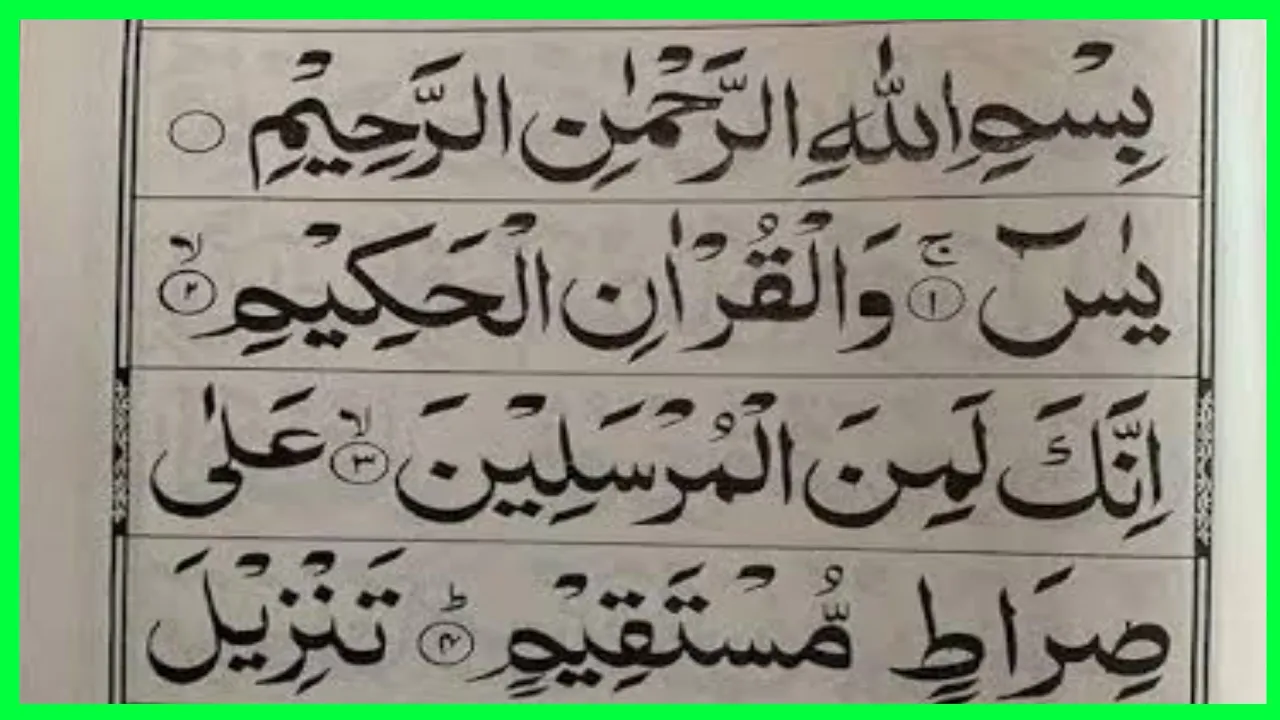 بِسْمِ اللّٰهِ الرَّحْمٰنِ الرَّحِيْمِ ۝
يٰسٓ ۚ‏﴿۱﴾ وَالْقُرْاٰنِ الْحَكِيْمِ ۙ‏﴿۲﴾
اِنَّكَ لَمِنَ الْمُرْسَلِيْنَ ۙ‏﴿۳﴾ عَلٰى
صِرَاطٍ مُّسْتَقِيْمٍ ؕ‏﴿۴﴾ تَنْزِيْلَ